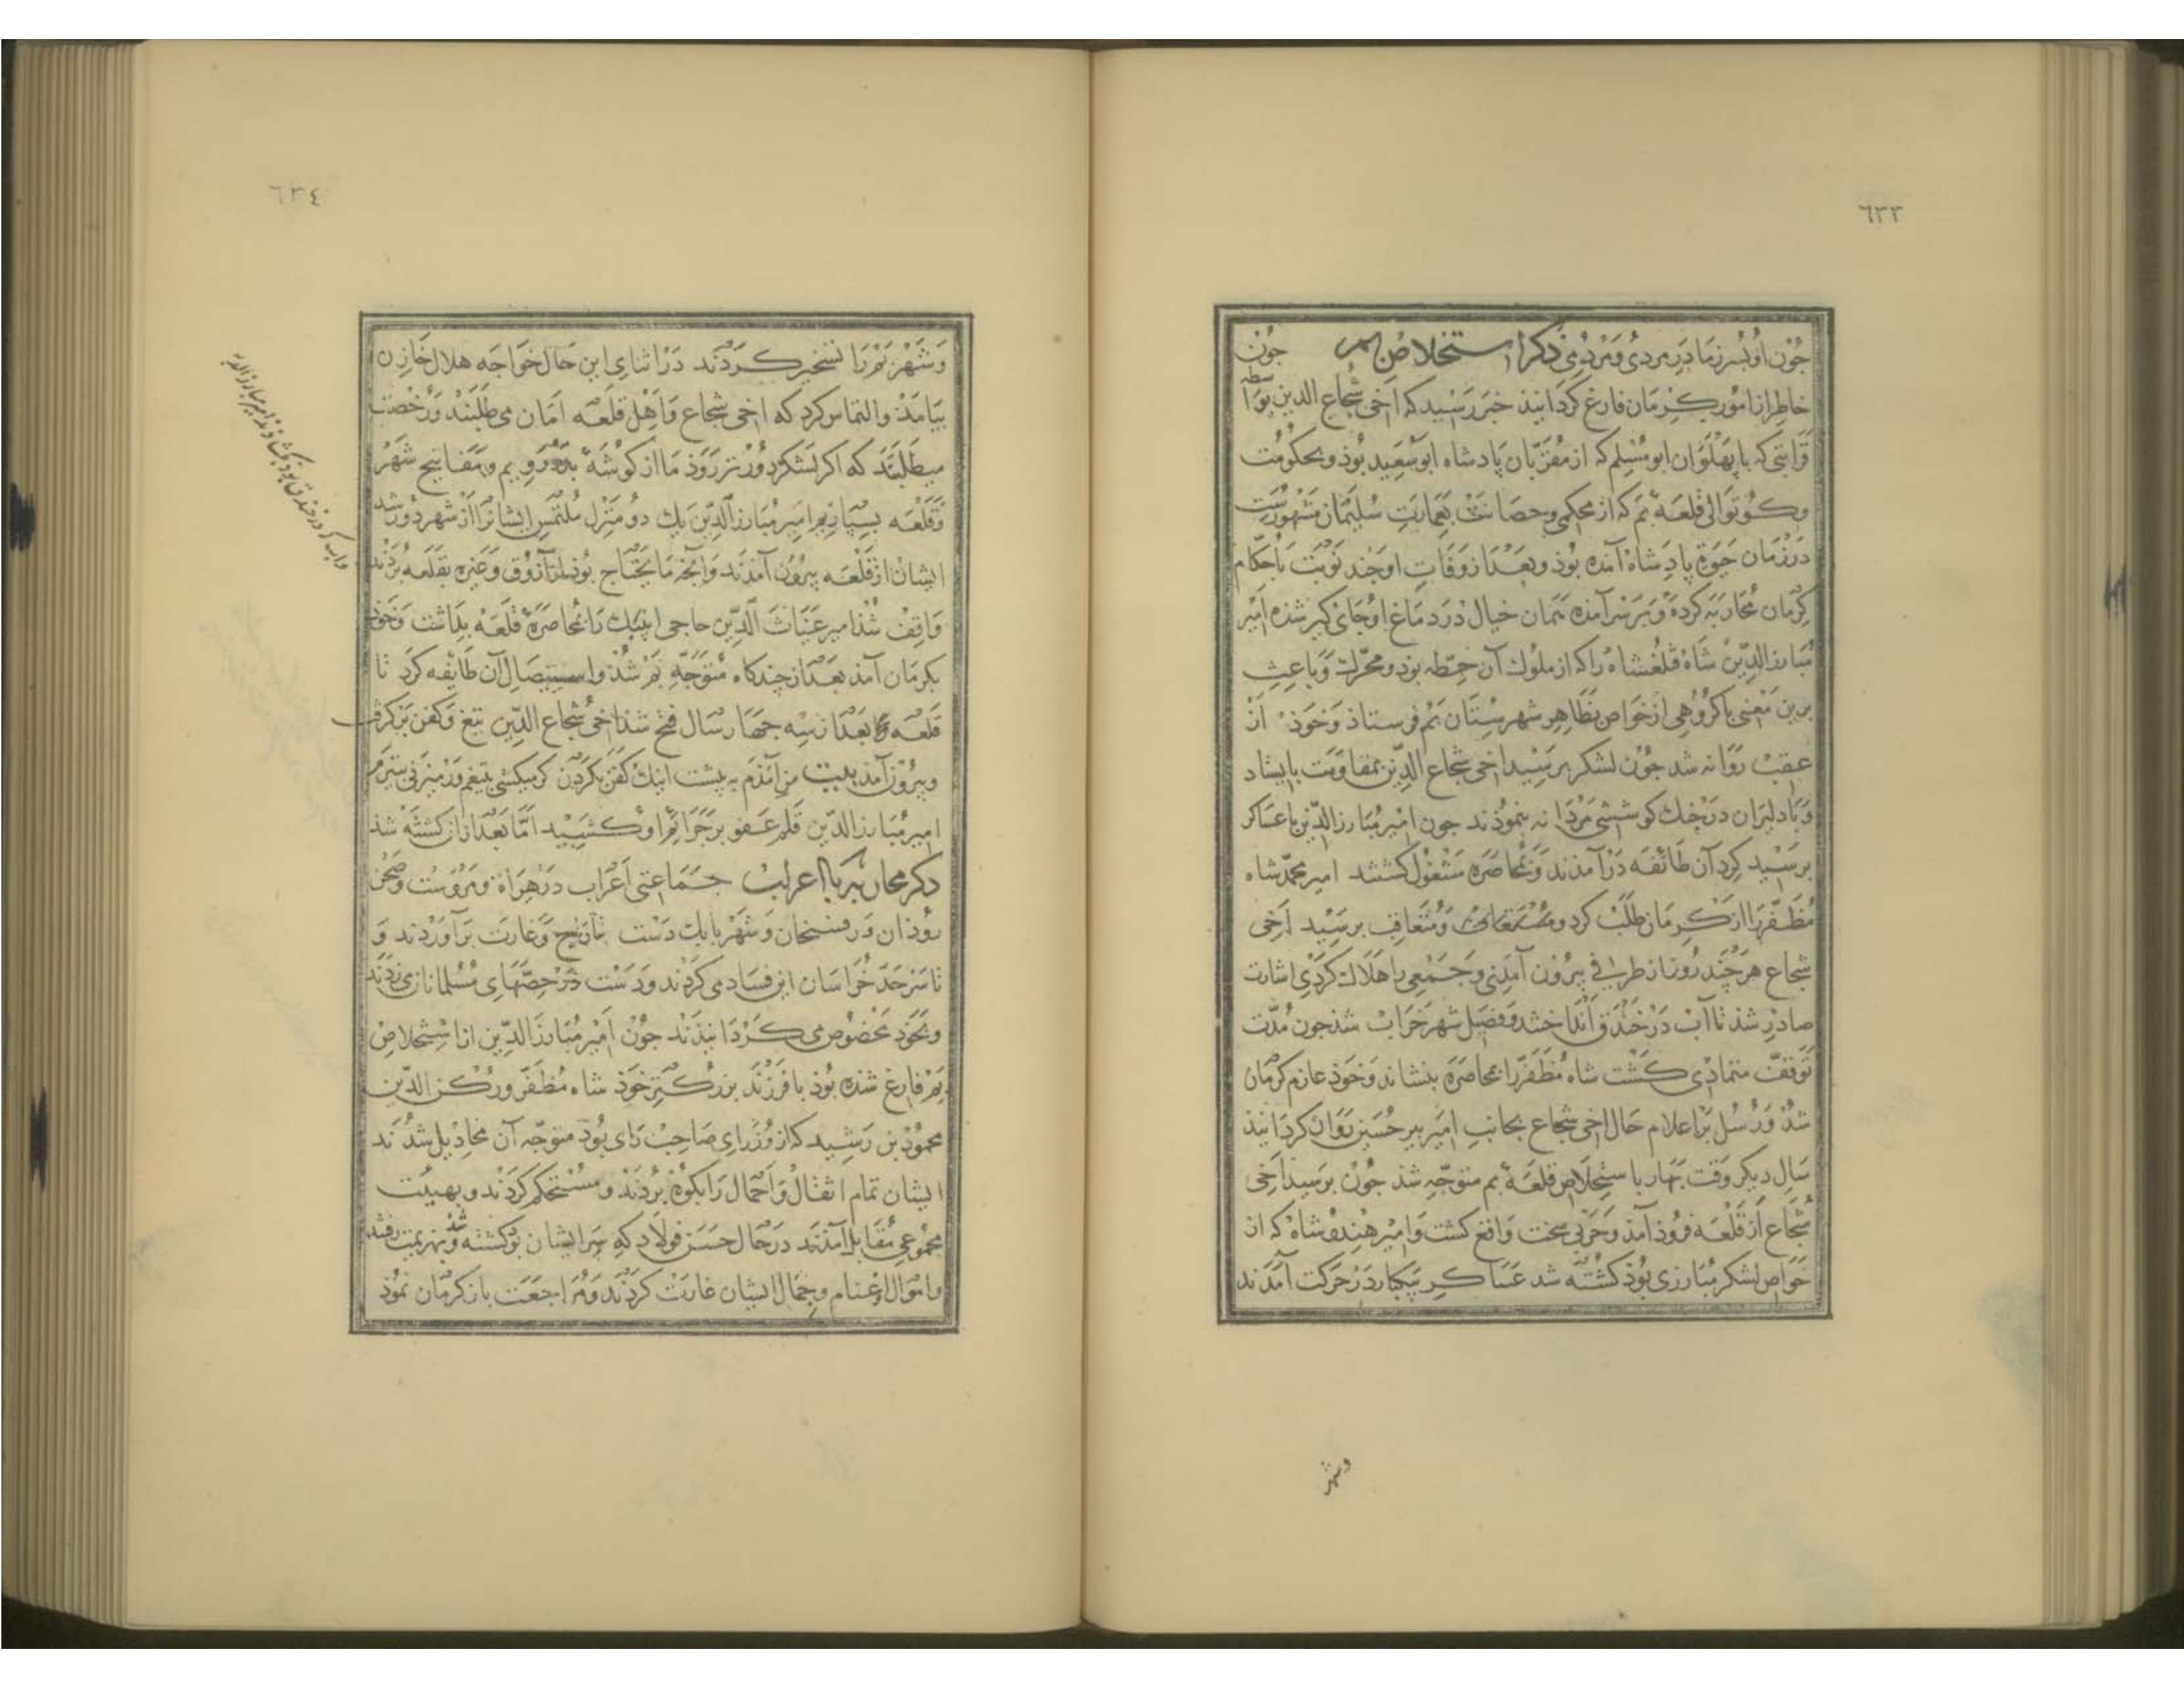 ٦٣٣
جون او پسر زمادر مردی و مردمی ذکر استخلاص بم جون
خاطر از امور کرمان فارغ کردانیذ خبر رسید که اخی شجاع الدین بواسطه
قرابتی که با پهلوان ابو مسلم که از مقربان پادشاه ابو سعید بوذ و بحکومت
و کوتوالی قلعه بم که از محکمی و حصانت بعمارت سلیمان مشهورست
در زمان حیوة پادشاه آمده بوذ و بعد از وفات او چند نوبت با حکام
کرمان محاربه کرده و برسر آمذه همان خیال در دماغ او جای کیر شذه امیر
مبارز الدین شاه قلغشاه را که از ملوک آن خطه بوذ و محرک و باعث
برین معنی با کروهی از خواص بظاهر شهرستان بم فرستاذ و خوذ از
عقب روانه شد جون لشکر برسید اخی شجاع الدین بمقاومت بایستاد
و با دلیران در جنک کوششی مردانه بنموذند جون امیر مبارز الدین با عساکر
برسید کرد آن طائفه در آمذند و بمحاصره مشغول کشتند امیر محمد شاه
مظفر را از کرمان طلب کرد و متعاقب برسید اخی
شجاع هر چند روز از طرفی بیرون آمدی و جمعی را هلاک کردی اشارت
صادر شذ تا آب در خندق انداختند و فصیل شهر خراب شذ جون مدت
توقف متمادی کشت شاه مظفر را بمحاصره بنشاند و خوذ عازم کرمان
شذ و رسل بر اعلام حال اخی شجاع بجانب امیر پیر حسین روان کردانیذ
سال دیکر وقت بهار با ستخلاص قلعه بم متوجه شذ جون برسید اخی
شجاع از قلعه فروذ آمذ و حربی سخت واقع کشت و امیر هندو شاه که از
خواص لشکر مبارزی بوذ کشته شد عساکر بیکبار در حرکت آمدند
وشهر
٦٣٤
و شهر بم را تسخیر کردند در اثنای این حال خواجه هلال خازن
بیامذ و التماس کرد که اخی شجاع و اهل قلعه امان می طلبند و رخصت
میطلبند که اکر لشکر دورتر روذ ما از کوشه بدر رویم و مفاتیح شهر
و قلعه بسپاریم امیر مبارز الدین یک دو منزل ملتمس ایشانرا از شهر دور شد
ایشان از قلعه بیرون آمذند و آنچه ما یحتاج بوذ از آزوق و غیره بقلعه بردند
واب که در خندق بود بکشاذند امیر مبارز الدین
واقف شذ امیر غیاث الدین حاجی اینبک را بمحاصره قلعه بداشت و خوذ
بکرمان آمذ بعد از چندکاه متوجه بم شذ و استیصال آن طایفه کرد تا
قلعه بعد از سه جهار سال فتح شذ اخی شجاع الدین تیغ و کفن برکرفت
و بیرون آمذ بیت من آمذم به پیشت اینک کفن بکردن کر میکشی بتیغم ور میزنی بتیرم
امیر مبارز الدین قلم عفو بر جرائم او کشید اما بعد از آن کشته شذ
ذکر محاربه با اعراب جماعتی اعراب در هراة و مروست و صحن
روذان و رفسنجان و شهر بابک دست بتاراج و غارت برآوردند و
تا سر حد خراسان این فساد می کردند و دست در حصهای مسلمانان می زدند
و بخوذ مخصوص می کردانیذند جون امیر مبارز الدین از استخلاص
بم فارغ شذه بوذ با فرزند بزرکتر خوذ شاه مظفر و رکن الدین
محمود بن رشید که از وزرای صاحب رای بوذ متوجه آن مخاذیل شدند
ایشان تمام اثقال و احمال را بکوه بردند و مستحکم کردند و بهیئت
مجموعی مقابل آمذند در حال حسن فولاد که سر ایشان بوذ کشته شد و بهزیمت رفتند
و اموال و اغنام و جمال ایشان غارت کردند و مراجعت باز کرمان نموذ